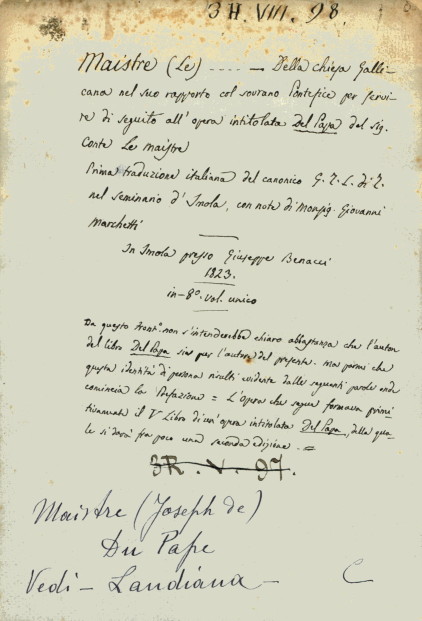 3 H. VIII. 98.
Maistre (Le) ----- Della chiesa Galli-
cana nel suo rapporto col sovrano Pontefice per servi-
re di seguito all'opera intitolata Del Papa del Sig.
Conte Le maistre
Prima traduzione italiana del canonico G. Z. L. di Z.
nel seminario d'Imola, con note di Monsig. Giovanni
Marchetti
In Imola presso Giuseppe Benacci
1823.
in-8.º vol. unico
Da questo front.º non s'intenderebbe chiaro abbastanza che l'autore
del libro Del Papa sia pur l'autore del presente. Ma parmi che
questa identità di persona risulti evidente dalle seguenti parole onde
comincia la Prefazione = L'opera che segue formava primi-
tivamente il V Libro di un'opera intitolata Del Papa, della qua-
le si darà fra poco una seconda edizione. =
3R. V. 97.
Maistre (Joseph de)
Du Pape
Vedi - Landiana - C